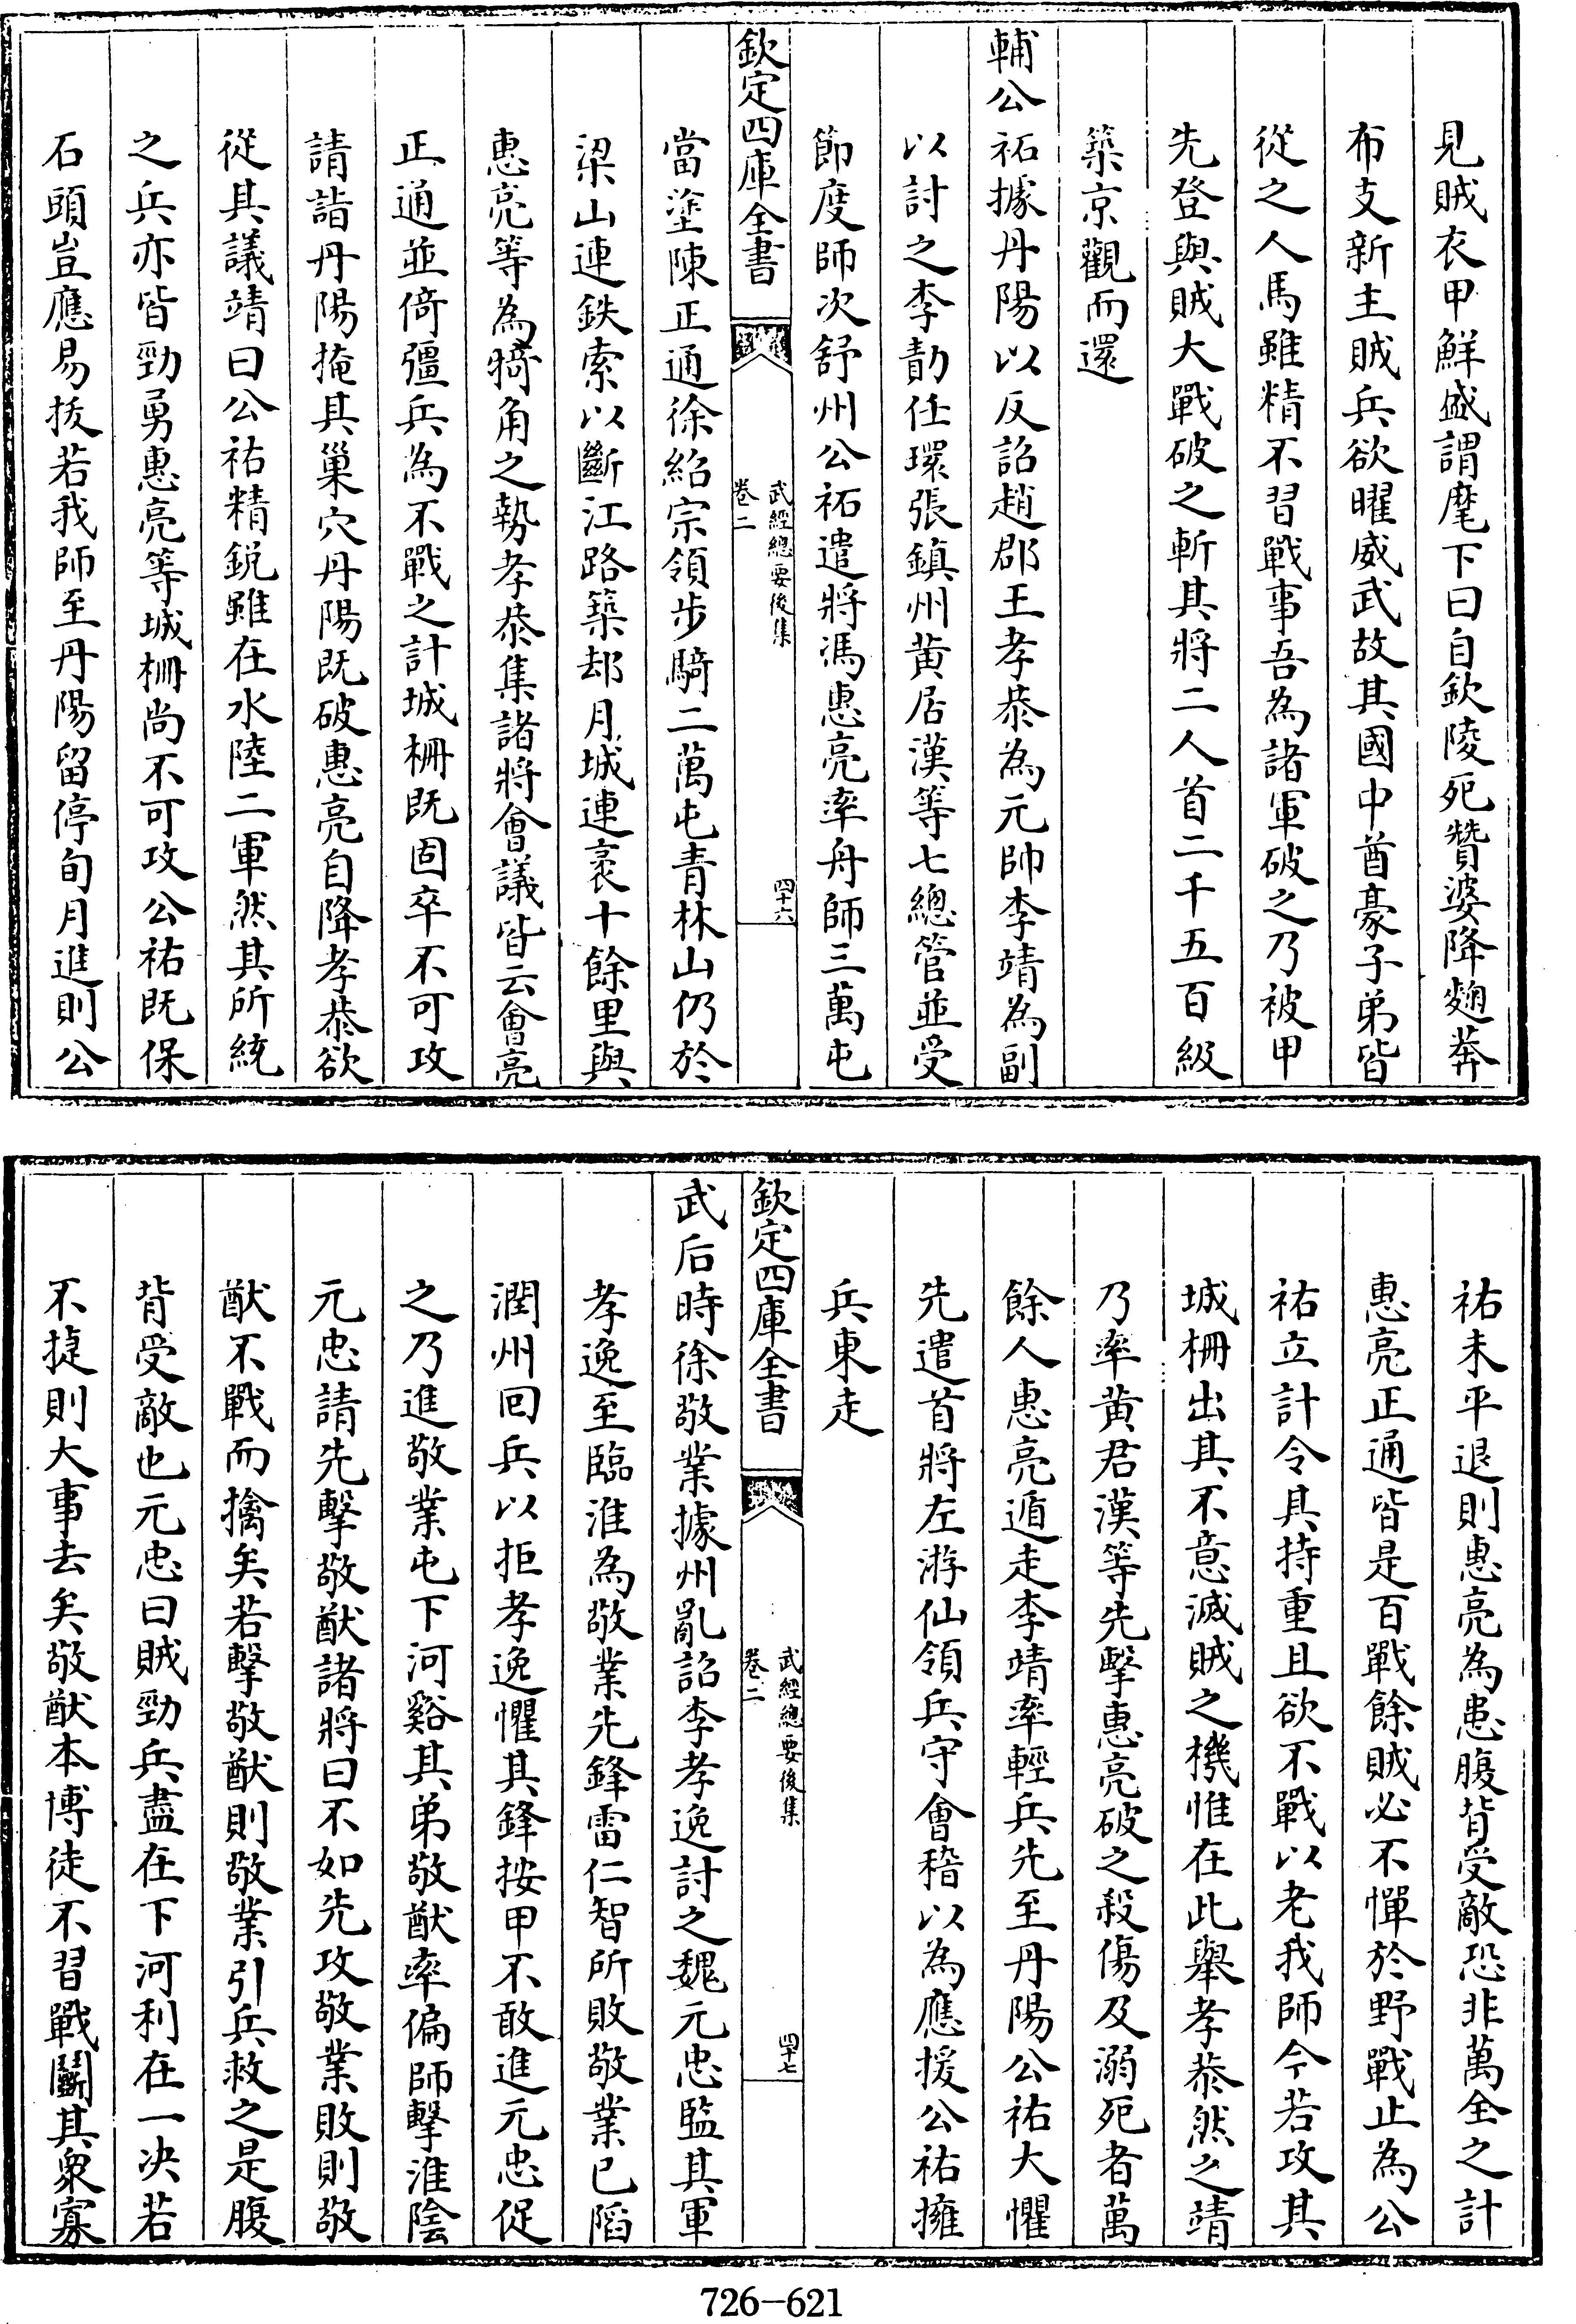 見賊衣甲鮮盛謂麾下曰自欽陵死贊婆降麹莽
布支新主賊兵欲曜威武故其國中酋豪子弟皆
從之人馬雖精不習戰事吾為諸軍破之乃被甲
先登與賊大戰破之斬其將二人首二千五百級
築京觀而還
輔公祏據丹陽以反詔趙郡王孝恭為元帥李靖為副
以討之李勣任瓌張鎮州黄居漢等七總管並受
節度師次舒州公祏遣將馮惠亮率舟師三萬屯
欽定四庫全書
武經總要後集
卷二
四十六
當塗陳正通徐紹宗領步騎二萬屯青林山仍於
梁山連鉄索以斷江路築却月城連袤十餘里與
惠亮等為犄角之勢孝恭集諸將會議皆云會亮
正通並倚彊兵為不戰之計城柵既固卒不可攻
請詣丹陽掩其巢穴丹陽既破惠亮自降孝恭欲
從其議靖曰公祐精鋭雖在水陸二軍然其所統
之兵亦皆勁勇惠亮等城柵尚不可攻公祐既保
石頭豈應易㧞若我師至丹陽留停旬月進則公
祐未平退則惠亮為患腹背受敵恐非萬全之計
惠亮正通皆是百戰餘賊必不憚於野戰止為公
祐立計令其持重且欲不戰以老我師今若攻其
城柵出其不意滅賊之機惟在此舉孝恭然之靖
乃率黄君漢等先擊惠亮破之殺傷及溺死者萬
餘人惠亮遁走李靖率輕兵先至丹陽公祐大懼
先遣首將左游仙領兵守會稽以為應援公祐擁
兵東走
欽定四庫全書
武經總要後集
卷二
四十七
武后時徐敬業據州亂詔李孝逸討之魏元忠監其軍
孝逸至臨淮為敬業先鋒雷仁智所敗敬業已䧟
潤州回兵以拒孝逸懼其鋒按甲不敢進元忠促
之乃進敬業屯下河谿其弟敬猷率偏師擊淮陰
元忠請先擊敬猷諸將曰不如先攻敬業敗則敬
猷不戰而擒矣若擊敬猷則敬業引兵救之是腹
背受敵也元忠曰賊勁兵盡在下河利在一决若
不捷則大事去矣敬猷本博徒不習戰鬭其衆寡
726—621